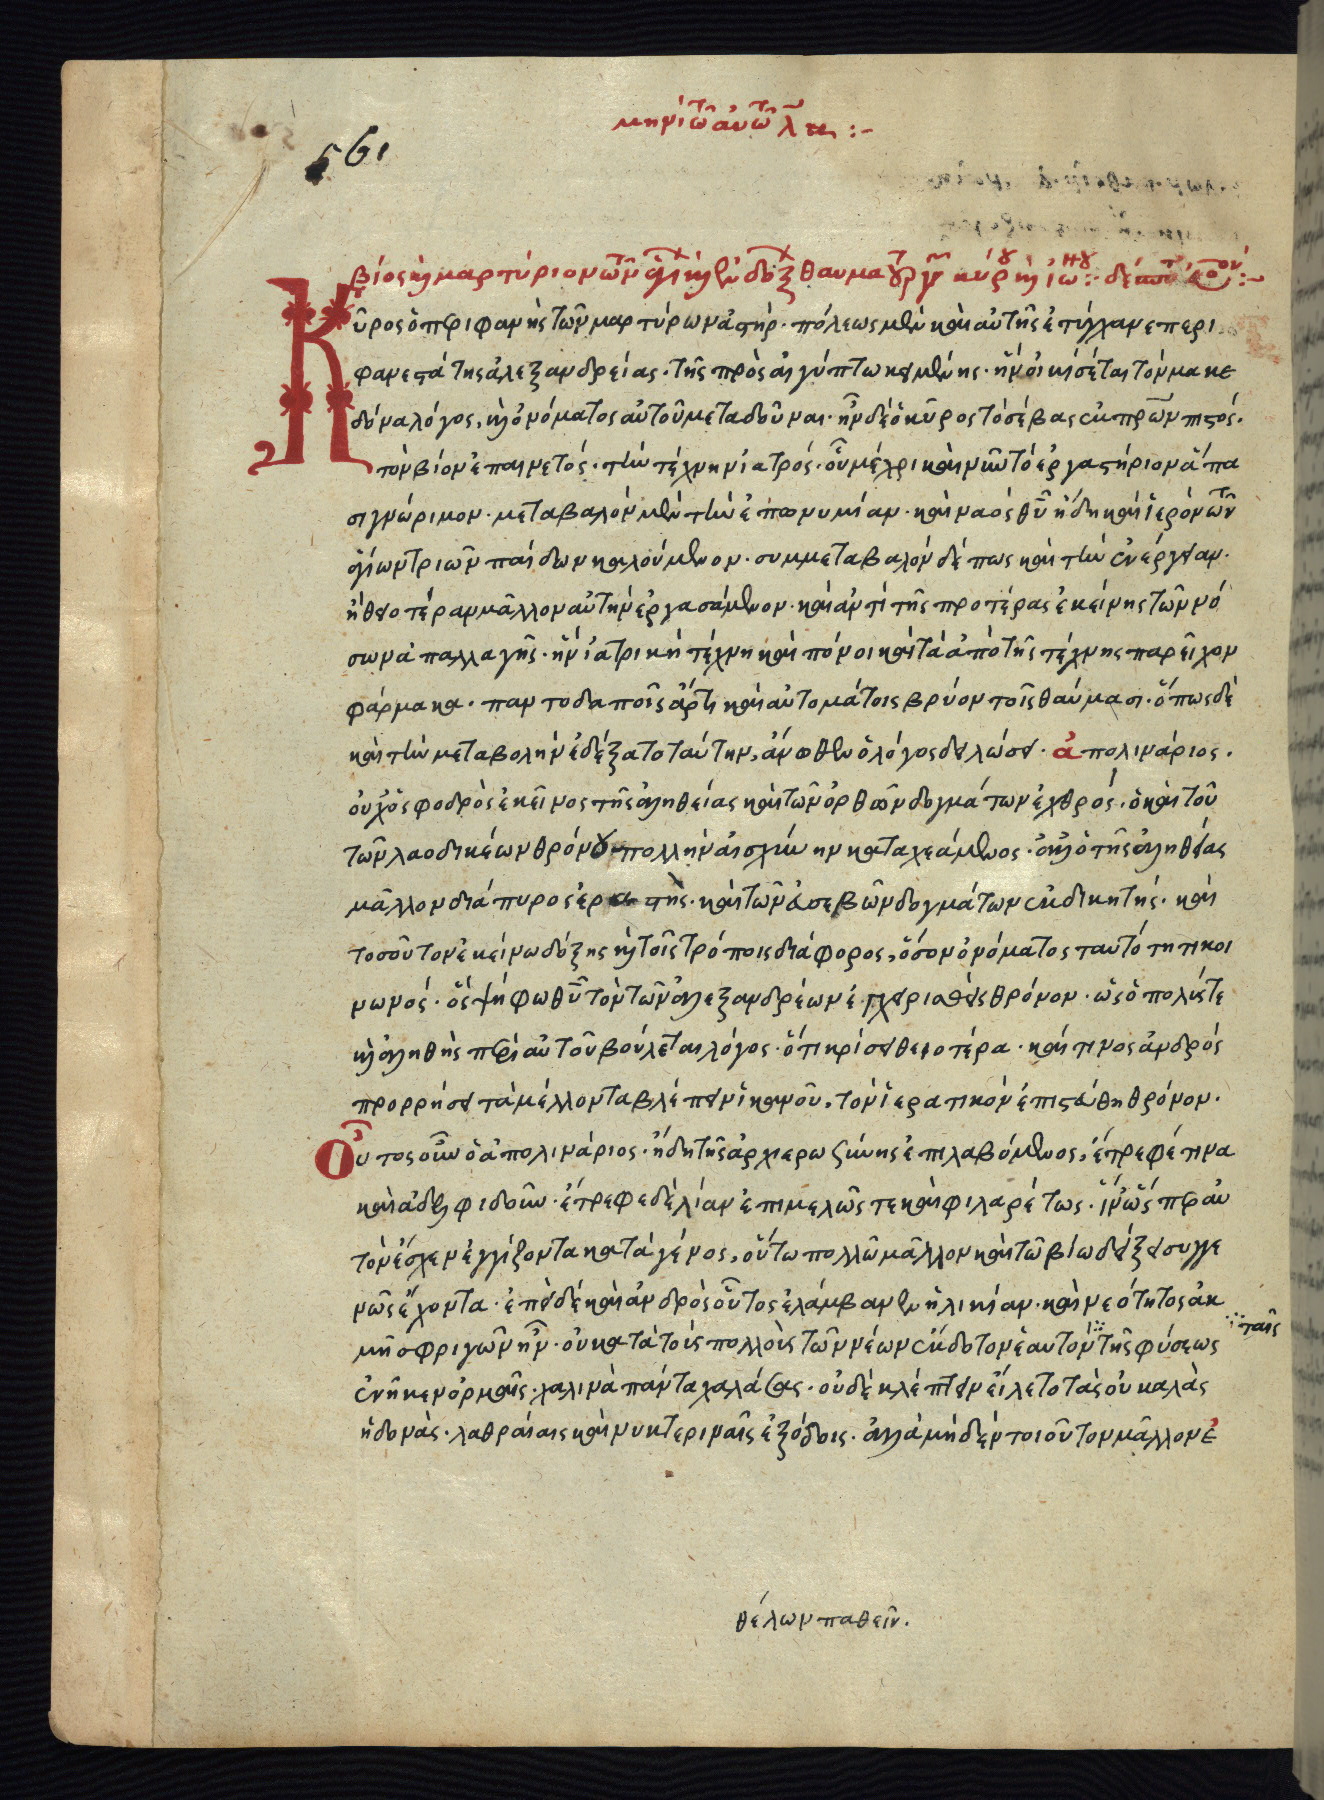 μηνὶ τῶ αὐτῶ λ τη :-
561
βίος καὶ μαρτύριον τῶν ἁγί καὶ ἐνδόξ θαυματουργ κύρου καὶ ἰωου : δέσποτ
Κῦρος ὁ περιφανὴς τῶν μαρτύρων ἀστήρ · πόλεως μὲν καὶ αὐτῆς ἐτύγχανε περι
φανεστάτης ἀλεξανδρείας · τῆς πρὸς αἰγύπτω κειμένης · ἣν οἰκίσεται τὸν μακε
δόνα λόγος, καὶ ὀνόματος αὐτοῦ μεταδοῦναι · ἦν δὲ ὁ κῦρος τὸ σέβας ἐκ πρῶν πιστός ·
τὸν βίον ἐπαινετός · τὴν τέχνην ἰατρός · οὗ μέχρι καὶ νῦν τὸ ἐργαστήριον ἅπα
σι γνώριμον · μεταβαλὸν μὲν τὴν ἐπωνυμίαν · καὶ ναὸς θυ ἤδη καὶ ἱερὸν τῶν
ἁγίων τριῶν παίδων καλούμενον · συμμεταβαλὸν δέ πως καὶ τὴν ἐνέργειαν ·
ἢ θειοτέραν μᾶλλον αὐτὴν ἐργασάμενον · καὶ ἀντὶ τῆς προτέρας ἐκείνης τῶν νό
σων ἀπαλλαγῆς · ἣν ἰατρικὴ τέχνη καὶ πόνοι καὶ τὰ ἀπὸ τῆς τέχνης παρεῖχον
φάρμακα · παντοδαποῖς ἄρτι καὶ αὐτομάτοις βρύον τοῖς θαύμασι · ὅπως δὲ
καὶ τὴν μεταβολὴν ἐδέξατο ταύτην, ἄνωθεν ὁ λόγος δηλώσει · ἀπολινάριος ·
οὐχ ὁ σφοδρὸς ἐκεῖνος τῆς ἀληθείας καὶ τῶν ὀρθῶν δογμάτων ἐχθρός, ὁ καὶ τοῦ
τῶν λαοδικέων θρόνου πολλὴν αἰσχύνην καταχεάμενος · ἀλλ' ὁ τῆς ἀληθείας
μᾶλλον διάπυρος ἐραστής · καὶ τῶν εὐσεβῶν δογμάτων ἐκδικητής · καὶ
τοσοῦτον ἐκείνω δόξης καὶ τοῖς τρόποις διάφορος, ὅσον ὀνόματος ταυτότητι κοι
νωνός · ὃς ψήφω θυ τὸν τῶν ἀλεξανδρέων ἐγχειρισθεὶς θρόνον · ὡς ὁ πολύς τε
καὶ ἀληθὴς περὶ αὐτοῦ βούλεται λόγος · ὅτι κρίσει θειοτέρα · καί τινος ἀνδρὸς
προρρήσει τὰ μέλλοντα βλέπειν ἱκανοῦ, τὸν ἱερατικὸν ἐπιστεύθη θρόνον ·
Οὗτος οὖν ὁ ἀπολινάριος · ἤδη τῆς ἀρχιερωσύνης ἐπιλαβόμενος, ἔτρεφέ τινα
καὶ ἀδελφιδοῦν · ἔτρεφε δὲ λίαν ἐπιμελῶς τε καὶ φιλαρέτως · ἵν' ὥσπερ αὐ
τὸν ἔσχεν ἐγγίζοντα κατὰ γένος, οὕτω πολλῶ μᾶλλον καὶ τῶ βίω δείξει συγγε
νῶς ἔχοντα · ἐπεὶ δὲ καὶ ἀνδρὸς οὗτος ἐλάμβανεν ἡλικίαν · καὶ νεότητος ἀκ
μῆ σφριγῶν ἦν · οὐ κατὰ τοὺς πολλοὺς τῶν νέων ἐκδοτον ἑαυτὸν ∴ τῆς φύσεως ∴ ταῖς
ἐνῆκεν ὁρμαῖς · χαλινὰ πάντα χαλάσας · οὐδὲ κλέπτειν εἵλετο τὰς οὐ καλὰς
ἡδονὰς · λαθραίαις καὶ νυκτεριναῖς ἐξόδοις · ἀλλὰ μηδὲν τοιοῦτον μᾶλλον ἐ
θέλων παθεῖν ·